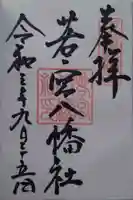 奉拝
若宮八幡社
令和三年九月二十五日